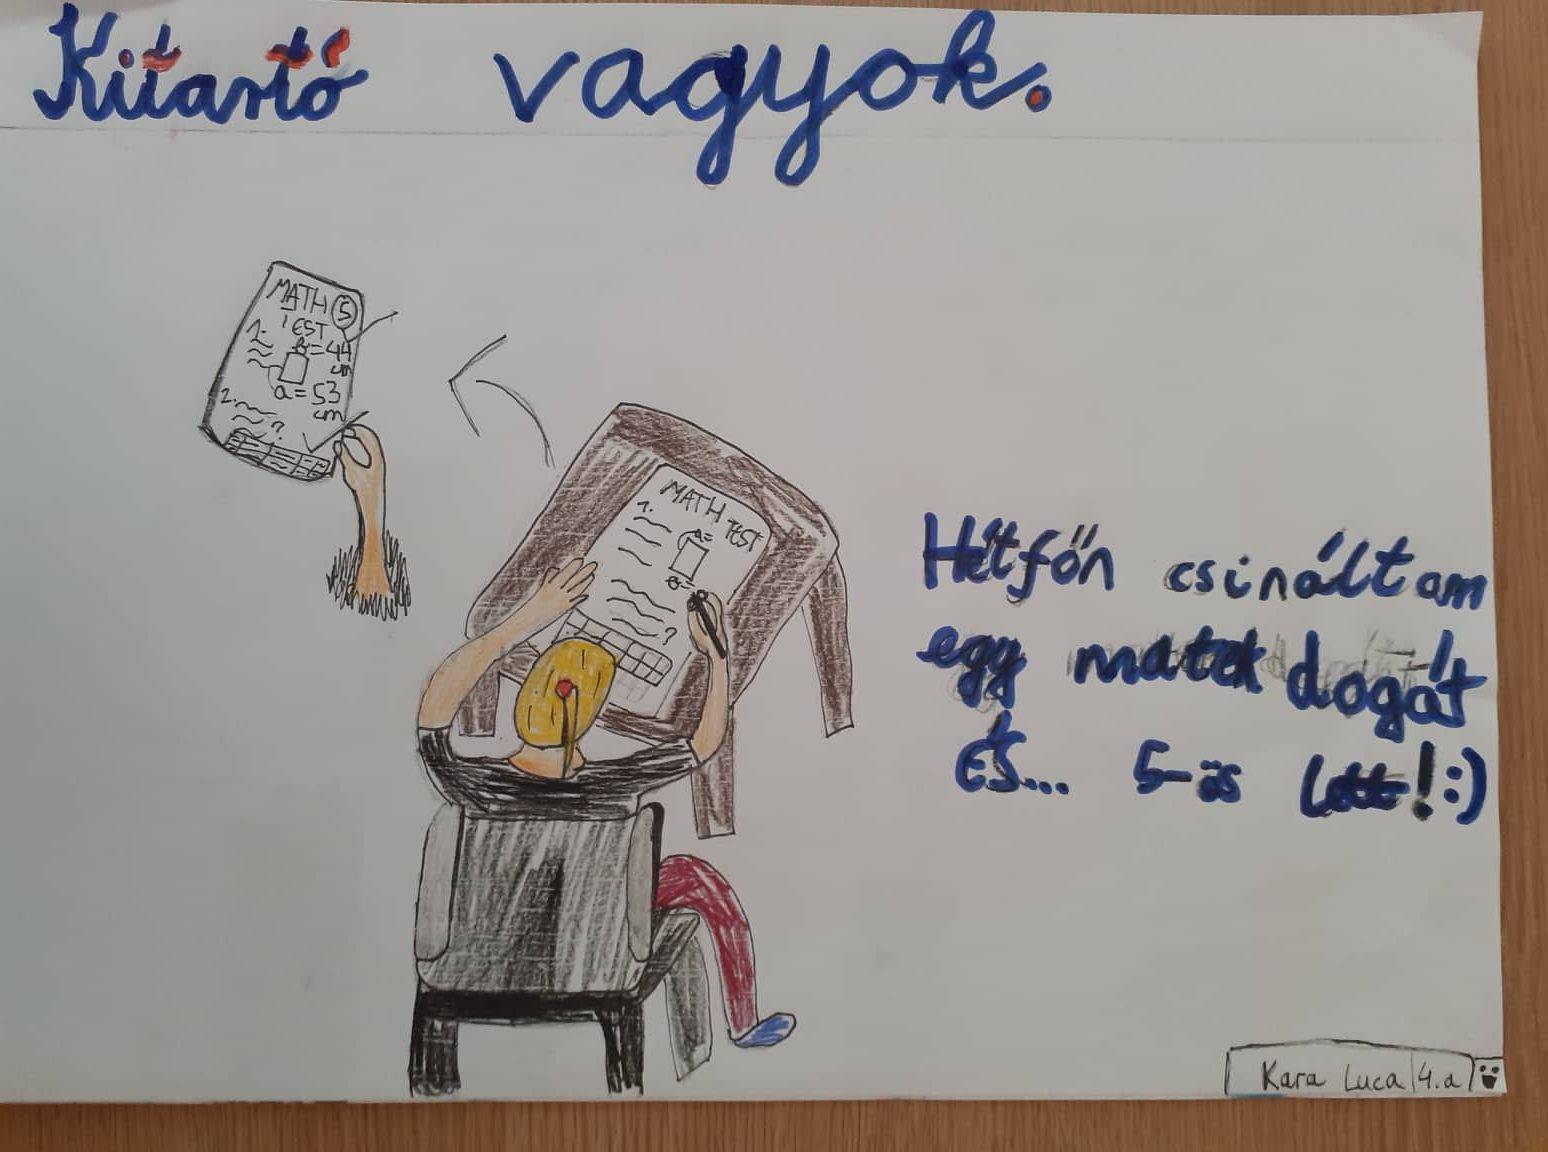 Kitartó vagyok.
MATH 5
TEST
1.
b=44
cm
a=53
cm
2.
?
MATH TEST
1.
a=
b=
?
Hétfőn csináltam
egy matek dogát
és... 5-ös lett!:)
Kara Luca 4.a